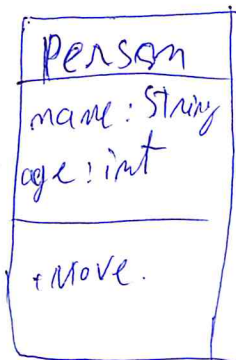 Person
name: String
age: int
+Move.